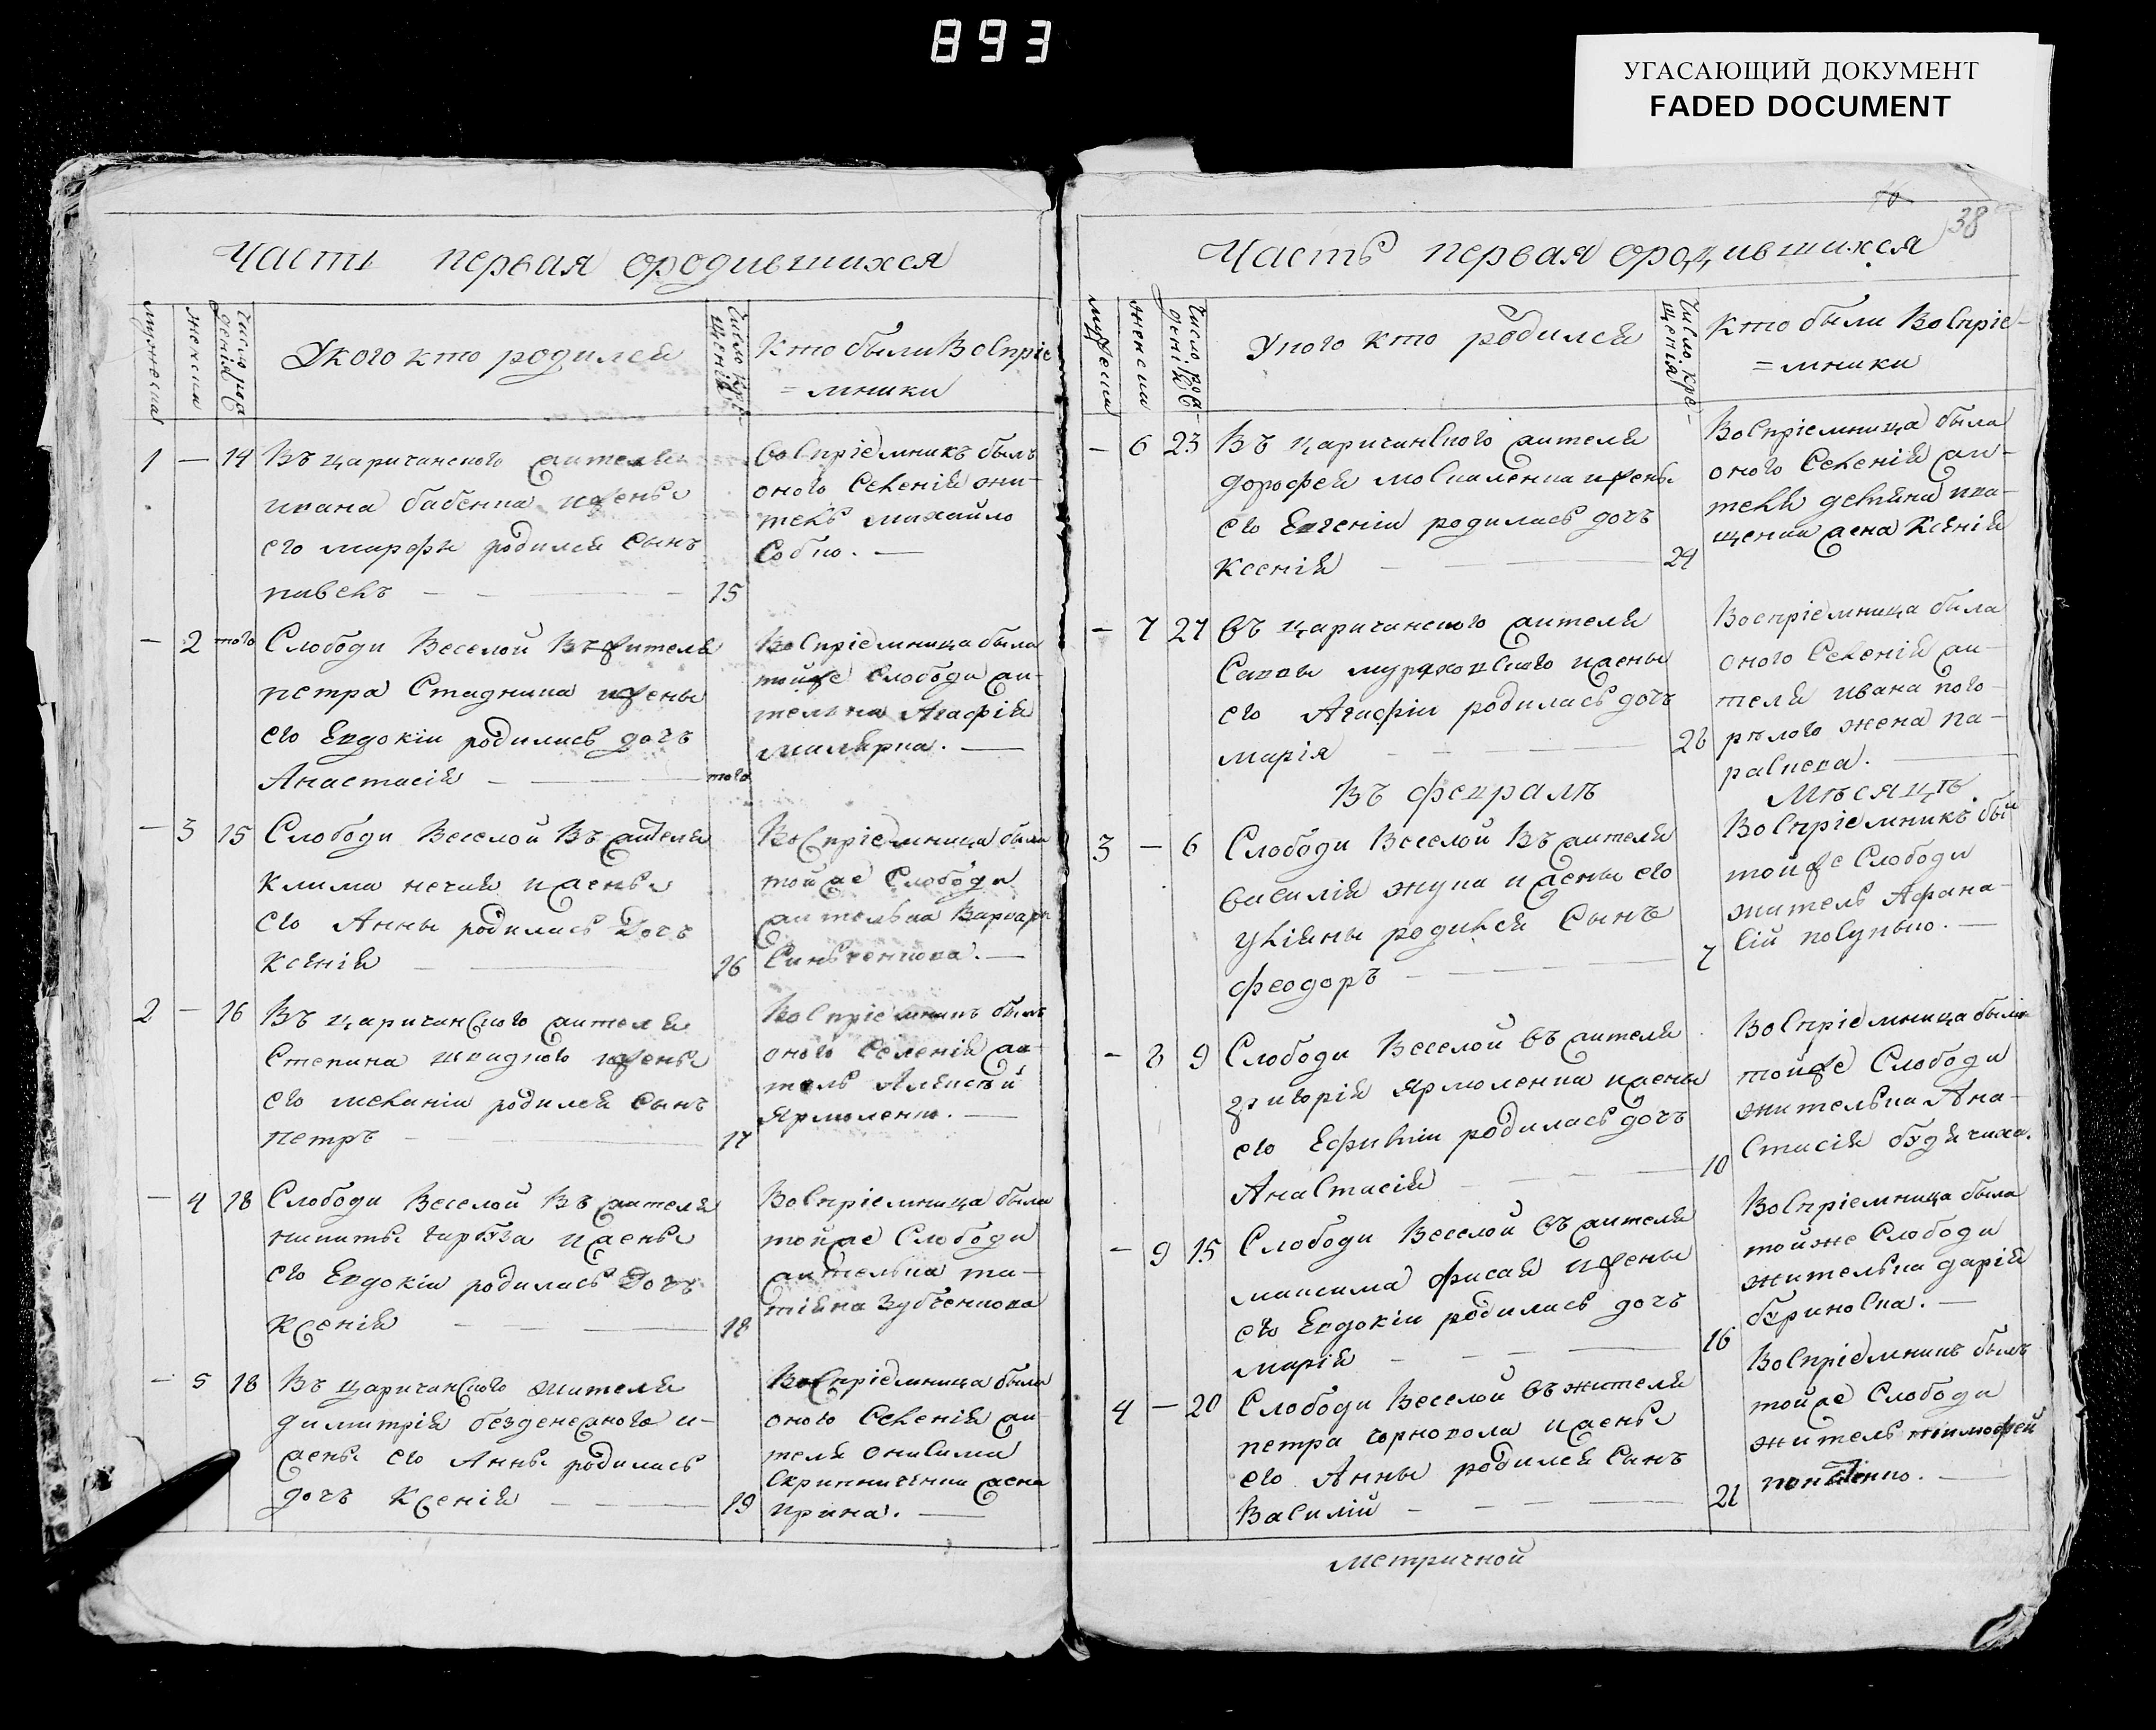 893
УГАСАЮЩИЙ ДОКУМЕНТ
FADED DOCUMENT
38
Часть первая ородившихся
мужеска
женска
Число рождения
Укого кто родился
Число крещения
Кто были Воспріе
=мники
1 — 14 Въ царичанского жителя
ивана бабенка ижены
его марфы родился сынъ
павелъ — 15
воспріемникъ былъ
оного Селенія жи-
тель михайло
Собко. —
— 2 того Слободи Веселой Въ жителя
петра Стадника ижены
его Евдокіи родилась дочъ
Анастасія — того
Воспріемница была
тойже Слободи жи-
телька Агафія
— 3 15 Слободи Веселой Въ жителя
клима нечая ижены
его Анны родилась Дочъ
Ксенія — 16
Воспріемница была
тойже Слободи
жителька Варвара
2 — 16 Въ царичанского жителя
Степана швидкого ижены
его меланіи родился сынъ
петръ — 17
Воспріемникъ былъ
оного Селенія жи-
тель Алексѣй
Ярмоленко. —
— 4 18 Слободи Веселой Въ жителя
никиты ижены
его Евдокіи родилась Дочъ
Ксенія — 18
Воспріемница была
тойже Слободи
жителька та-
тіяна Зубченкова
— 5 18 Въ Царичанского жителя
димитрія безденежного и-
жены его Анны родилась
дочъ Ксенія — 19
Воспріемница была
оного Селенія жи-
теля онисима
Скринниченка жена
ирина. —
Часть первая ородившихся
мужеска
женска
Число рождения
Укого кто родился
Число крещенія
Кто были Воспріе-
=мники
— 6 23 Въ царичанского жителя
дорофея москаленка ижены
его Евгеніи родилась дочъ
Ксенія — 24
Воспріемница была
оного Селенія жи-
теля
жена Ксенія
— 7 27 въ царичанского жителя
Савы ижены
его Агафіи родилась дочъ
марія — 28
Воспріемница была
оного Селенія жи-
теля ивана пого-
рѣлого жена па-
раскева. —
Въ февралѣ Мѣсяцѣ.
3 — 6 Слободи Веселой Въ жителя
василія жука ижены его
уліяны родился Сынъ
феодоръ — 7
Воспріемникъ былъ
тойже Слободи
житель Афана-
сій —
— 8 9 Слободи Веселой въ жителя
григорія Ярмоленка ижены
его Ефиміи родилась дочъ
Анастасія — 10
Воспріемница была
тойже Слободи
жителька Ана-
стасія
— 9 15 Слободи Веселой въ жителя
максима ижены
его Евдокіи родилась дочъ
марія — 16
Воспріемница была
тойже Слободи
жителька дарія
4 — 20 Слободи Веселой въ жителя
петра чорновола ижены
его Анны родился Сынъ
Василій — 21
Воспріемникъ былъ
тойже Слободи
житель тимофей
метричной